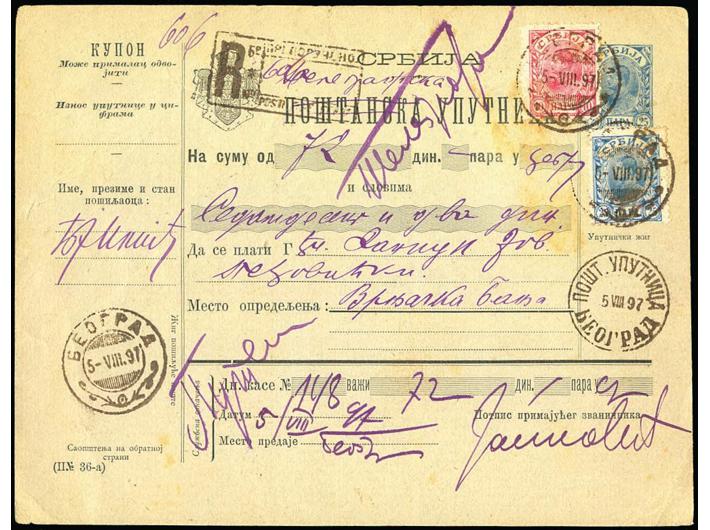 КУПОН
Може прималац одво-
јити
Износ упутнице у ци-
фрама
Име, презиме и стан
пошиљаоца:
Саопштења на обратној
страни
(П№ 36-а)
606
R
606
СРБИЈА
Телеграфска
ПОШТАНСКА УПУТНИ
На суму од 72 дин. — пара у
и словима
Седамдесет и два дин.
Да се плати Г
Место определења: Врњачка Бања
Телеграфом
СРБИЈА
СРБИЈА
ПАРА 25
СРБИЈА
5-VIII.97
5-VIII.97
Упутнички жиг
ПОШТ. УПУТНИЦА
5 VIII 97
БЕОГРАД
БЕОГРАД
5-VIII.97
Дн. касе № 148 важи 72 дин. пара
Датум 5/VIII 97
Место предаје
Потпис примајућег званичника